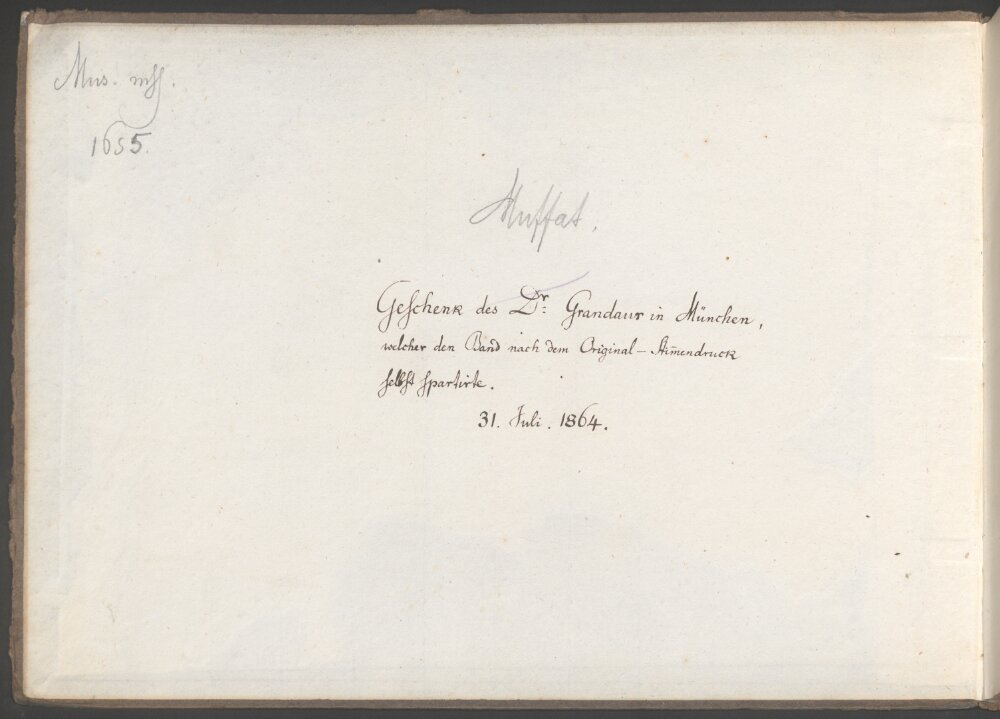 Mus. mss.
1655.
Muffat.
Geschenk des Dr: Grandaur in München,
welcher den Band nach dem Original-Stim̄endruck
selbst spartirte.
31. Juli. 1864.